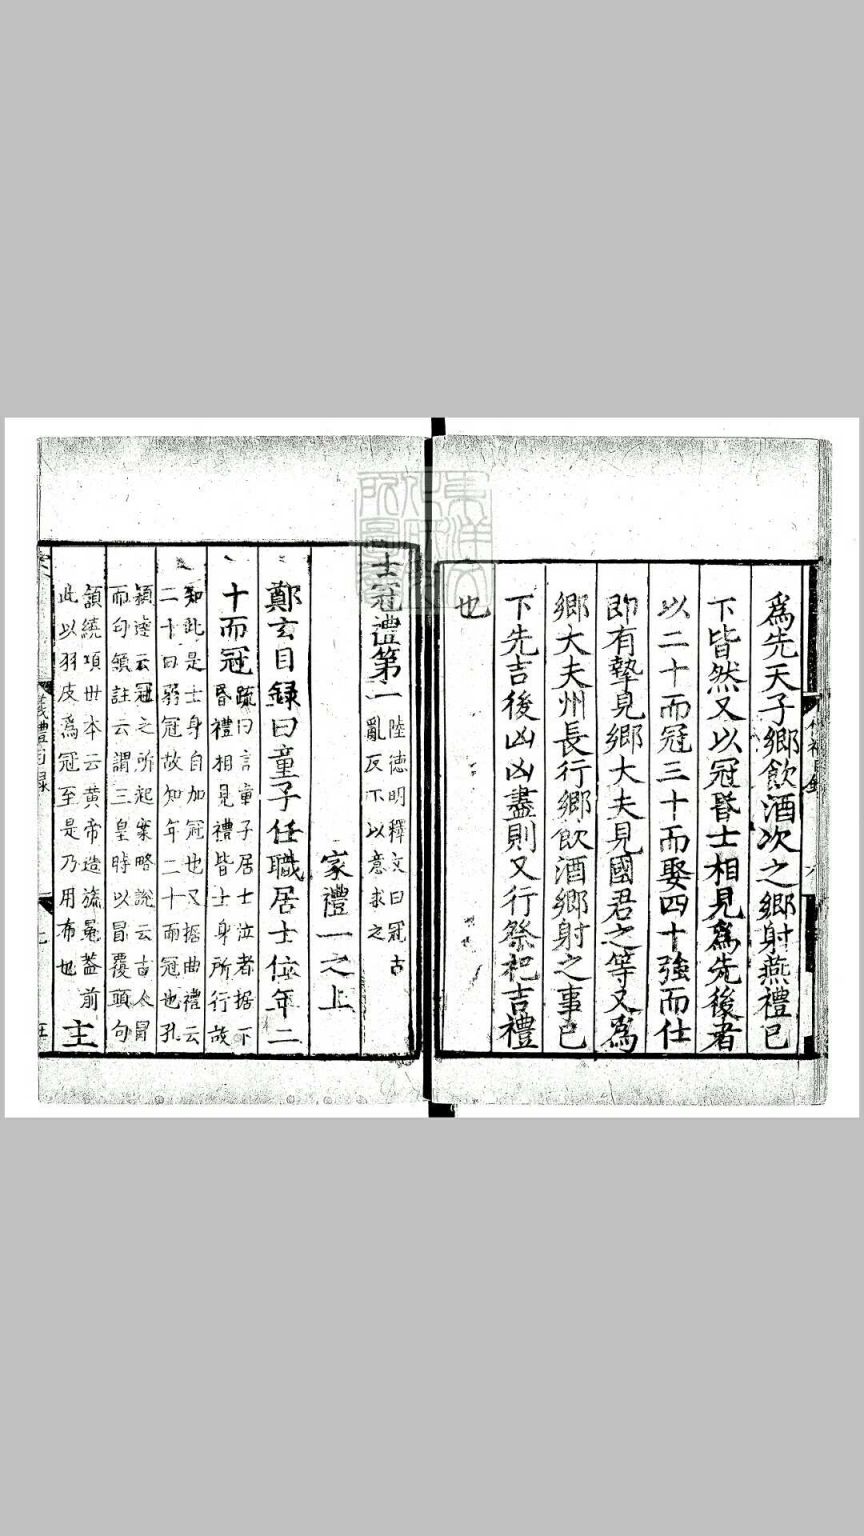 爲先天子鄉飲酒次之鄉射燕禮已
下皆然又以冠昏士相見爲先後者
以二十而冠三十而娶四十強而仕
即有摯見鄉大夫見國君之等又爲
鄉大夫州長行鄉飲酒鄉射之事已
下先吉後凶凶盡則又行祭祀吉禮
也
士冠禮第一
陸德明釋文曰冠古
亂反下以意求之
家禮一之上
鄭玄目録曰童子任職居士位年二
十而冠
疏曰言童子居士位者據下
昏禮相見禮皆士身所行故
知此是士身自加冠也又據曲禮云
二十曰弱冠故知年二十而冠也孔
穎達云冠之所起案略說云古人冒
而句領註云謂三皇時以冒覆頭句
領繞項世本云黄帝造旒冕蓋前
此以羽皮爲冠至是乃用布也
主